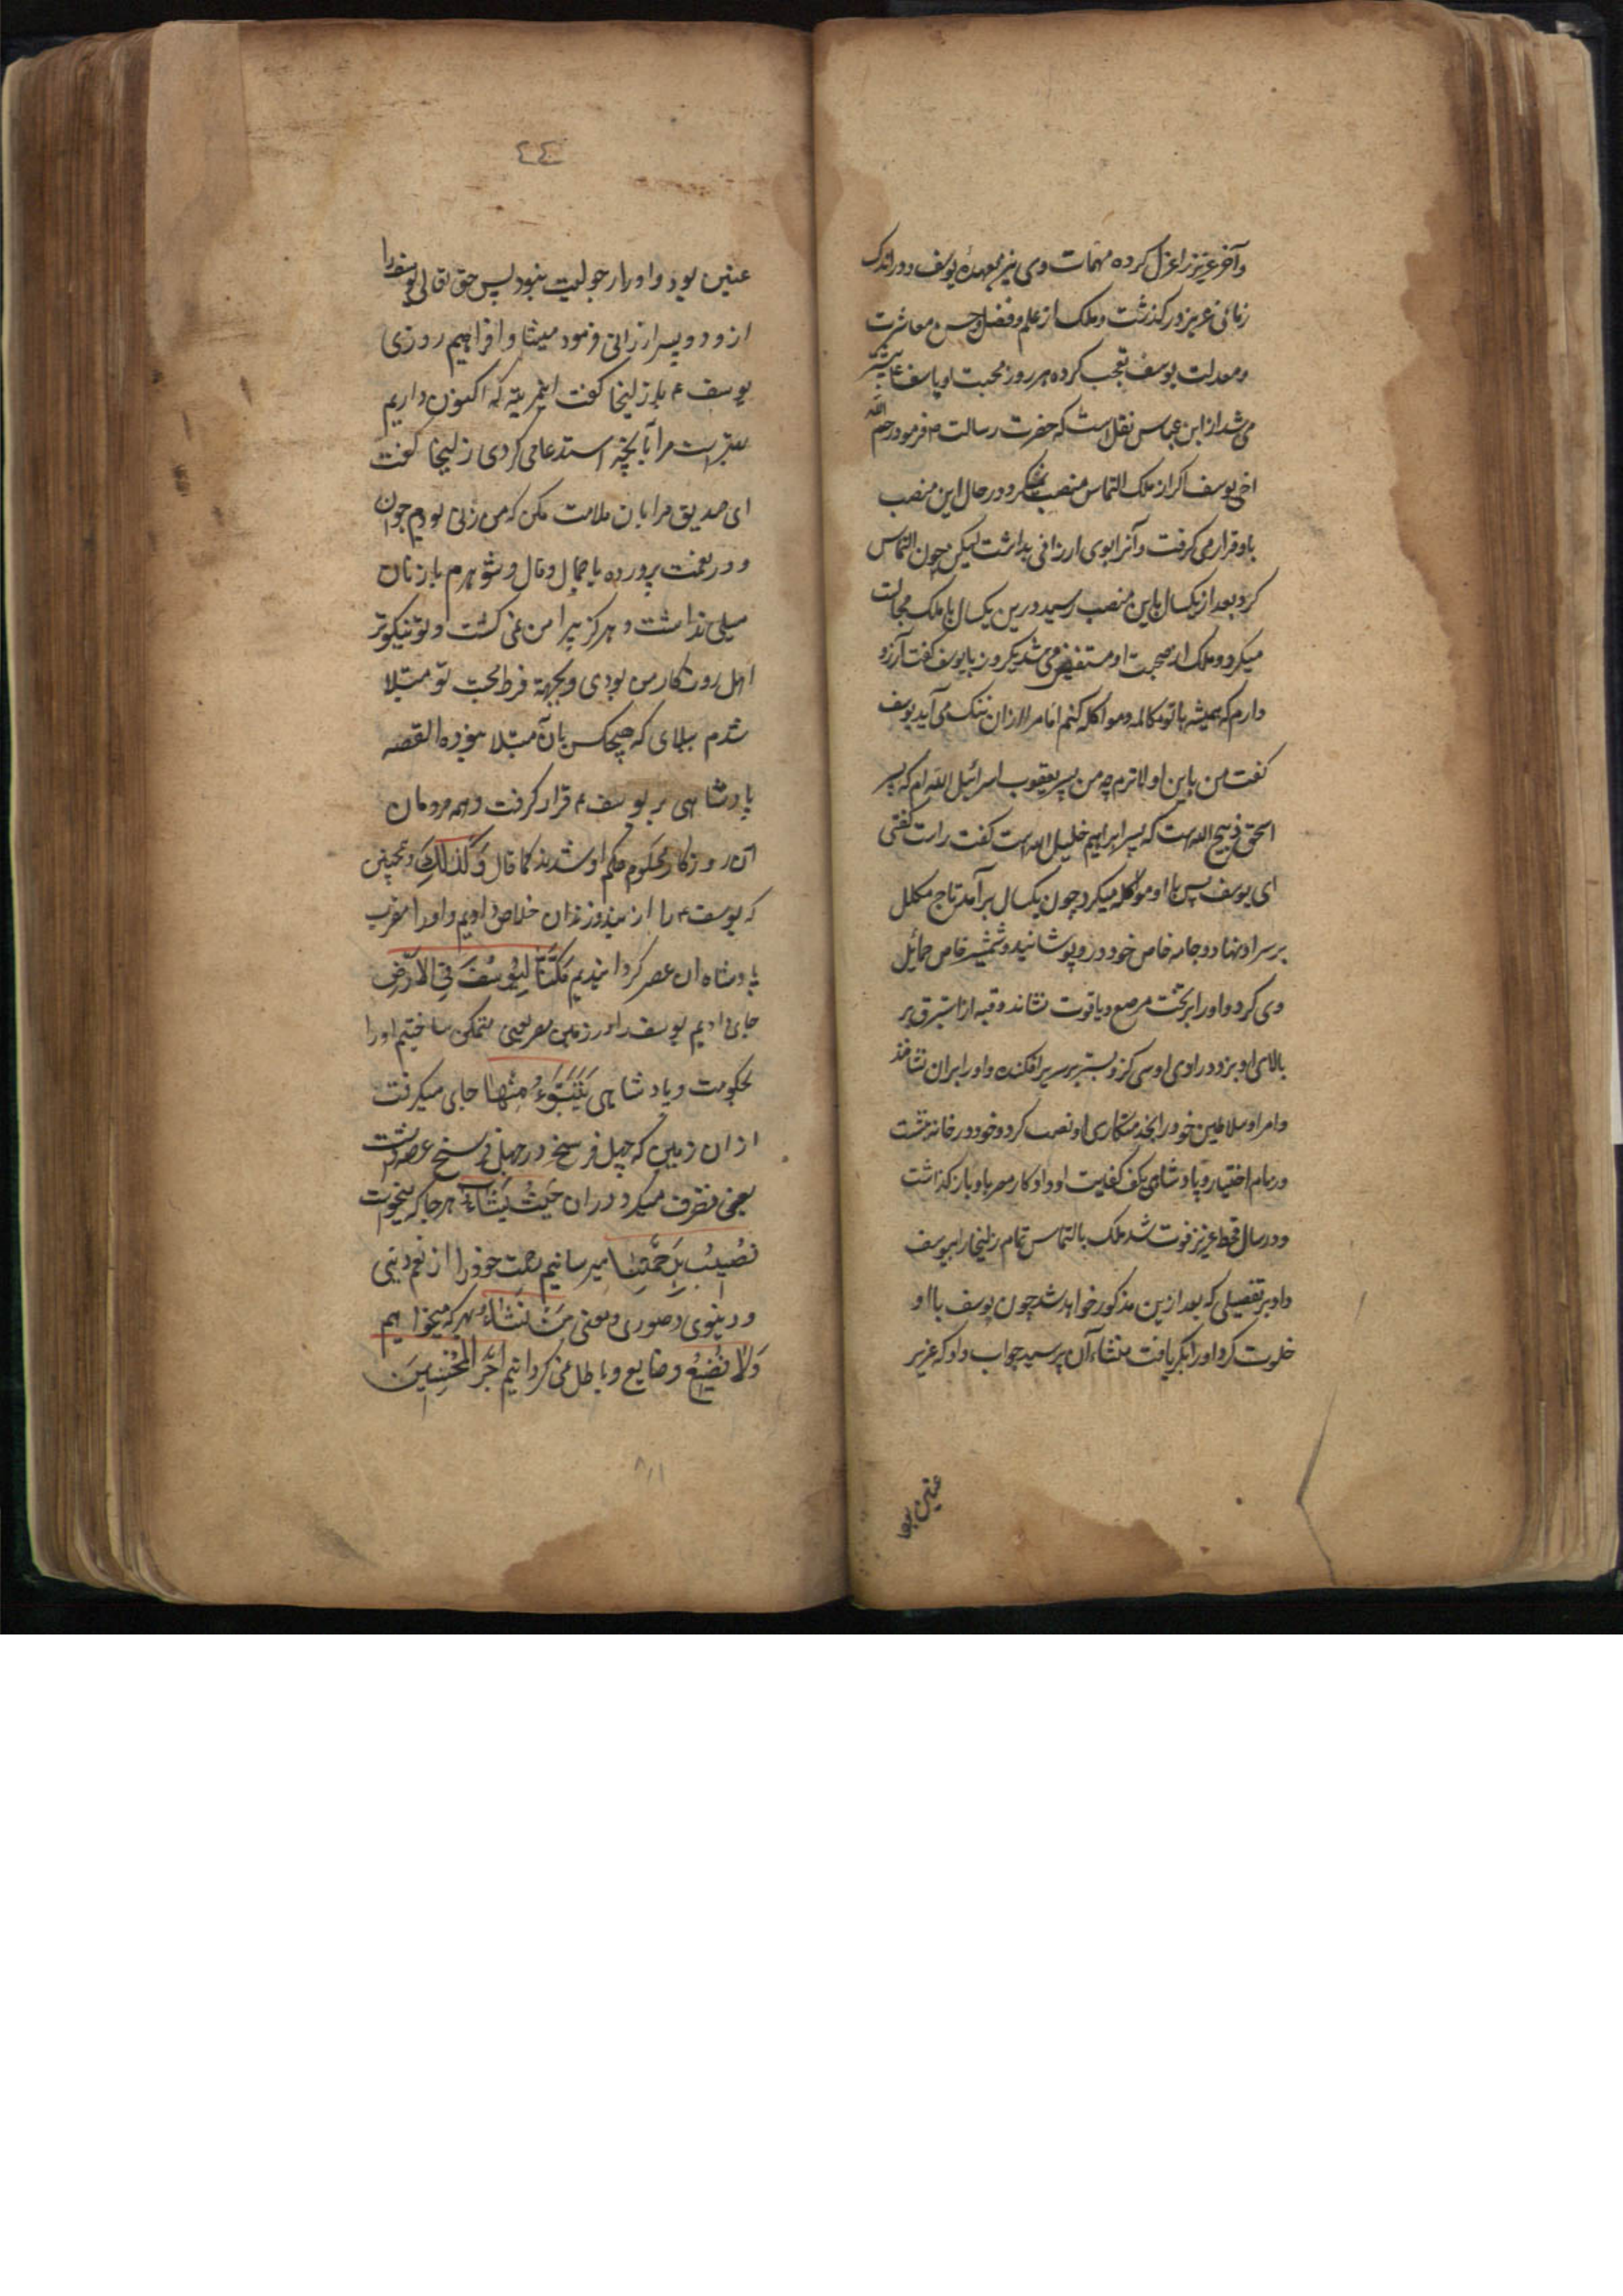 وآخر عزیز را عزل کرده مهمات وی نیز بعهدهٔ یوسف و در اندک
زمانی عزیز در گذشت و ملک از علم و فضل و حسن معاشرت
و معدلت یوسف تعجب کرده هر روز محبت او با یوسف ۴ بیشتر
می شد از ابن عباس نقل است که حضرت رسالت ۳ فرمود رحم الله
اخی یوسف اگر از ملک التماس منصب نمیکرد در حال این منصب
باو قرار می گرفت و آنرا بوی ارزانی بداشت لیکن چون التماس
کرد بعد از یکسال باین منصب رسید و درین یکسال با ملک مجالست
میکرد و ملک از صحبت او مستفیض می شد یکروز با یوسف گفت آرزو
دارم که همیشه با تو مکالمه و مواکله کنم اما مرا از ان ننگ می آید یوسف
گفت من باین اولاترم چه من پسر یعقوب اسرائیل الله ام که پسر
اسحق ذبیح الله است که پسر ابراهیم خلیل الله است گفت راست گفتی
ای یوسف پس با او مواکله میکرد چون یکسال بر آمد تاج مکلل
بر سر او نهاد و جامه خاص خود در و پوشانید و شمشیر خاص حمائل
وی کرد و او را بر تخت مرصع و یاقوت نشاند و قبه از استبرق بر
بالای او بزد و در اوی سی گز و بستر بر سریر افکنده و او را بران نشاند
و امرا و سلاطین خود را بخدمتکاری او نصب کرد و خود در خانه نشست
و زمام اختیار و پادشاهی بکف کفایت او داد و کار مصر باو باز گذاشت
و در سال قحط عزیز فوت شد ملک بالتماس تمام زلیخا را بیوسف
داد بر تفصیلی که بعد ازین مذکور خواهد شد چون یوسف با او
خلوت کرد او را بکر یافت منشاء آن پرسید جواب داد که عزیز
عنین بود
٤٤
عنین بود و او را رجولیت نبود پس حق تعالی یوسف را
ازو دو پسر ارزانی فرمود میشا و افراهیم روزی
یوسف ۴ با زلیخا گفت این مرتبه که اکنون داریم
بهتر است مرا با آنچه استدعا می کردی زلیخا گفت
ای صدیق مرا بان ملامت مکن که من زنی بودم جوان
و در نعمت پرورده با جمال و مال و شوهرم با زنان
میلی نداشت و هرگز پیرامن من نمی گشت و تو نیکوتر
اهل روزگار من بودی و بجهة فرط محبت تو مبتلا
شدم ببلای که هیچکس بآن مبتلا نبوده القصه
پادشاهی بر یوسف ۴ قرار گرفت و همه مردمان
آن روزگار محکوم حکم او شدند کما قال وَکَذٰلِکَ و همچنین
که یوسف ۴ را از بند و زندان خلاص دادیم و او را مقرب
پادشاه ان عصر گردانیدیم مَکَّنَّا لِیُوسُفَ فِی الْاَرْضِ
جای دادیم یوسف را در زمین مصر یعنی متمکن ساختیم او را
بحکومت و پادشاهی یَتَبَوَّءُ مِنْهَا جای میگرفت
از ان زمین که چهل فرسخ در چهل فرسخ عرصه داشت
یعنی تصرف میکرد دران حَیْثُ یَشَاءُ هر جا که میخواست
نُصِیبُ بِرَحْمَتِنَا میرسانیم رحمت خود را از نعم دینی
و دنیوی و صوری و معنی مَنْ نَشَاءُ بهر که میخواهیم
وَلَا نُضِیعُ و ضایع و باطل نمی گردانیم اَجْرَ الْمُحْسِنِینَ